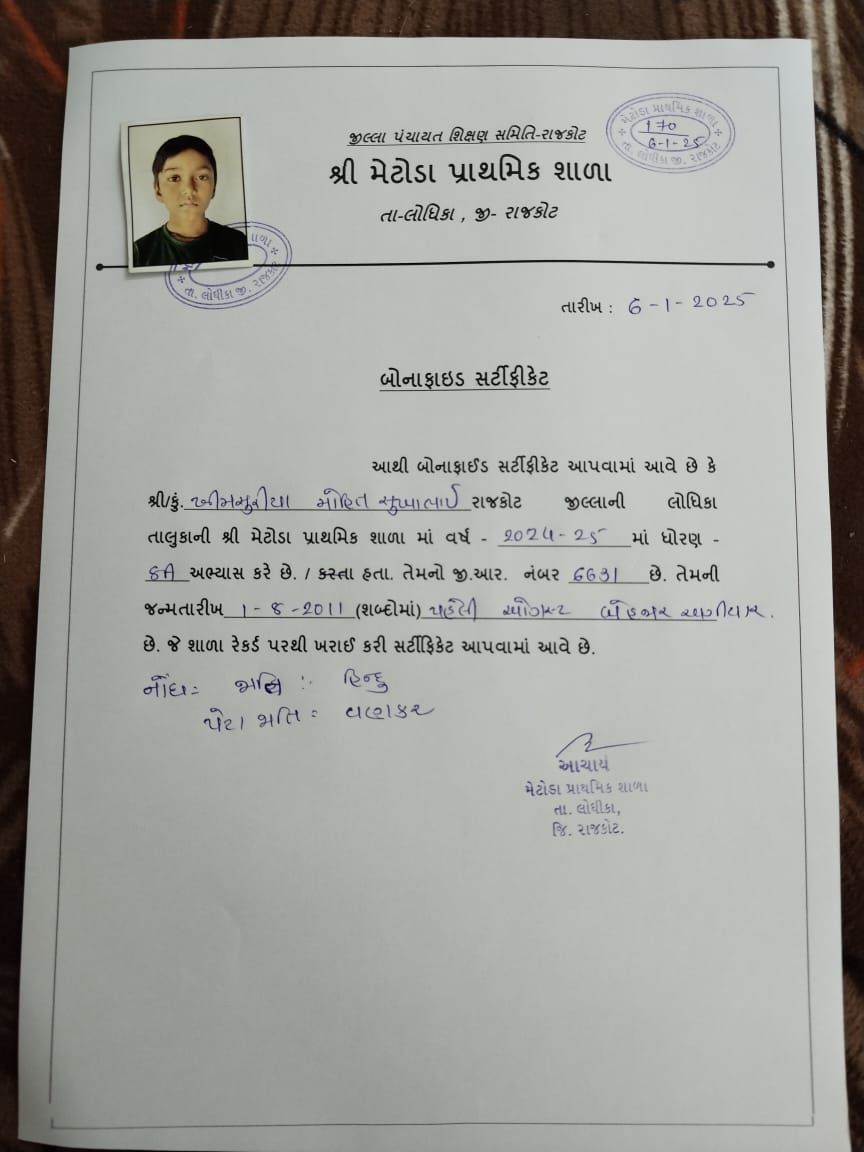 જીલ્લા પંચાયત શિક્ષણ સમિતિ-રાજકોટ
શ્રી મેટોડા પ્રાથમિક શાળા
તા-લોધિકા , જી- રાજકોટ
મેટોડા પ્રાથમિક શાળા
170
6-1-25
તા. લોધીકા જી. રાજકોટ
તા. લોધીકા જી. રાજકોટ
તારીખ : 6-1-2025
બોનાફાઇડ સર્ટીફીકેટ
આથી બોનાફાઈડ સર્ટીફીકેટ આપવામાં આવે છે કે
શ્રી/કું. ખીમસુરીયા મોહિત સુખાભાઈ રાજકોટ જીલ્લાની લોધિકા
તાલુકાની શ્રી મેટોડા પ્રાથમિક શાળા માં વર્ષ - 2024-25 માં ધોરણ -
8A અભ્યાસ કરે છે. / કરતા હતા. તેમનો જી.આર. નંબર 6631 છે. તેમની
જન્મતારીખ 1-8-2011 (શબ્દોમાં) પહેલી ઓગસ્ટ બેહજાર અગીયાર.
છે. જે શાળા રેકર્ડ પરથી ખરાઈ કરી સર્ટીફિકેટ આપવામાં આવે છે.
નોંધ: જાતિ : હિન્દુ
પેટા જાતિ : વણકર
આચાર્ય
મેટોડા પ્રાથમિક શાળા
તા. લોધીકા,
જિ. રાજકોટ.